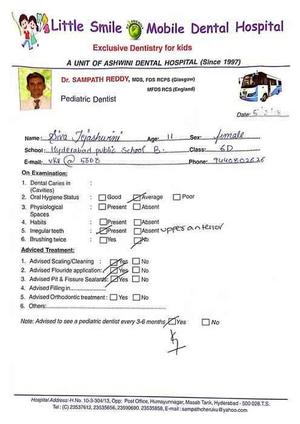 Little Smile Mobile Dental Hospital
Exclusive Dentistry for kids
A UNIT OF ASHWINI DENTAL HOSPITAL (Since 1997)
Dr. SAMPATH REDDY, MDS, FDS RCPS (Glasgow)
MFDS RCS (England)
Pediatric Dentist
Date:
Name: Siva Tejashwini Age: 11 Sex: female
School: Hyderabad public School B. Class: 6D
E-mail: Phone: 9440802626
On Examination:
1. Dental Caries in :
(Cavities)
2. Oral Hygiene Status : Good Average Poor
3. Physiological : Present Absent
Spaces
4. Habits : Present Absent
5. Irregular teeth : Present Absent upper anterior
6. Brushing twice : Yes No
Adviced Treatment:
1. Advised Scaling/Cleaning : Yes No
2. Advised Flouride application: Yes No
3. Advised Pit & Fissure Sealants: Yes No
4. Advised Filling in
5. Advised Orthodontic treatment : Yes No
6. Others:
Note: Advised to see a pediatric dentist every 3-6 months Yes No
Hospital Address: H.No. 10-3-304/13, Opp: Post Office, Humayunnagar, Masab Tank, Hyderabad - 500 028.T.S.
Tel: (C) 23537612, 23535656, 23590690, 23535858, E-mail : sampathcheruku@yahoo.com